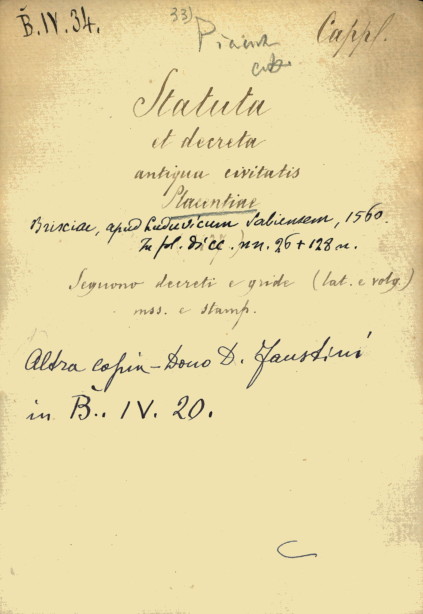 B̄.IV.34.
33)
Cappl.
Statuta
et decreta
antiqua civitatis
Placentiae
Brixiae, apud Ludovicum Sabiensem, 1560
In fol. di cc. nn. 26 + 128 n.
Seguono decreti e gride (lat. e volg.)
mss. e stamp.
Altra copia - Dono D. Faustini
in B̄.. IV. 20.